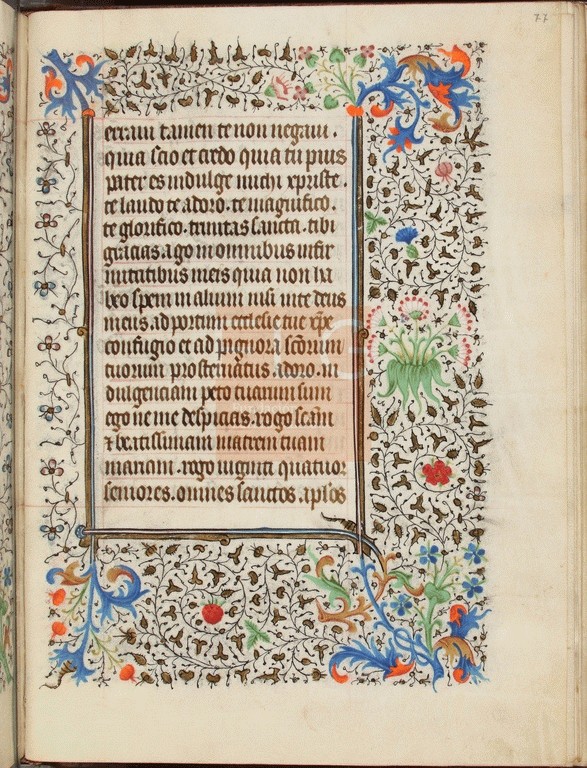 77
erraui tamen te non negaui.
quia scio et credo quia tu pius
pater es indulge michi xpriste.
te laudo te adoro. te magnifico.
te glorifico. trinitas sancta. tibi
gracias. ago in omnibus infir
mitatibus meis quia non ha
beo spem in alium nisi in te deus
meus. ad portum ecclesie tue xp̄e
confugio et ad pignora sc̄orum
tuorum prosternatus. adoro. in
dulgenciam peto tuarum sum
ego ne me despicias. rogo sc̄am
⁊ beatissimam matrem tuam
mariam. rogo uiginti quatuor
seniores. omnes sanctos. aplōs